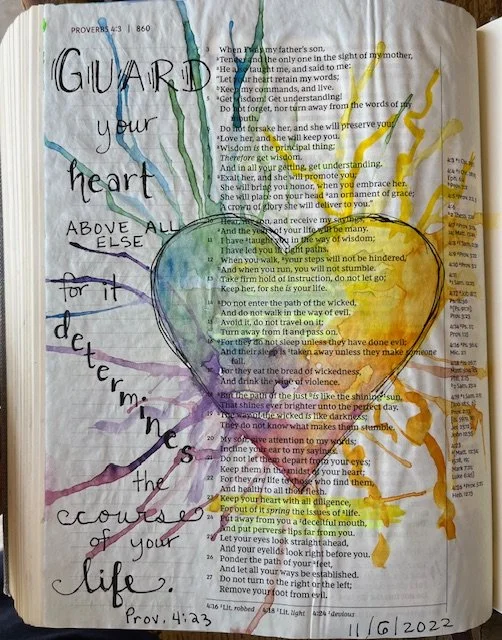 PROVERBS 4:3 | 860
GUARD
your
heart
ABOVE ALL
ELSE
for it
determines
the
course
of your
life.
Prov. 4:23
3 When I was my father's son,
Tender and the only one in the sight of my mother,
4 He also taught me, and said to me:
"Let your heart retain my words;
Keep my commands, and live.
5 Get wisdom! Get understanding!
Do not forget, nor turn away from the words of my
Do not forsake her, and she will preserve you;
Love her, and she will keep you.
Wisdom is the principal thing;
Therefore get wisdom.
And in all your getting, get understanding.
Exalt her, and she will promote you;
She will bring you honor, when you embrace her.
She will place on your head an ornament of grace;
A crown of glory she will deliver to you."
Hear, my son, and receive my sayings,
And the years of your life will be many.
11 I have taught you in the way of wisdom;
I have led you in right paths.
12 When you walk, your steps will not be hindered,
And when you run, you will not stumble.
13 Take firm hold of instruction, do not let go;
Keep her, for she is your life.
Do not enter the path of the wicked,
And do not walk in the way of evil.
Avoid it, do not travel on it;
Turn away from it and pass on.
For they do not sleep unless they have done evil;
And their sleep is taken away unless they make someone
fall.
For they eat the bread of wickedness,
And drink the wine of violence.
But the path of the just is like the shining sun,
That shines ever brighter unto the perfect day.
19 The way of the wicked is like darkness;
They do not know what makes them stumble.
20 My son, give attention to my words;
Incline your ear to my sayings.
21 Do not let them depart from your eyes;
Keep them in the midst of your heart;
22 For they are life to those who find them,
And health to all their flesh.
23 Keep your heart with all diligence,
For out of it spring the issues of life.
24 Put away from you a deceitful mouth,
And put perverse lips far from you.
25 Let your eyes look straight ahead,
And your eyelids look right before you.
26 Ponder the path of your feet,
And let all your ways be established.
27 Do not turn to the right or the left;
Remove your foot from evil.
4:16 Lit. robbed 4:18 Lit. light 4:24 devious
11/6/2022